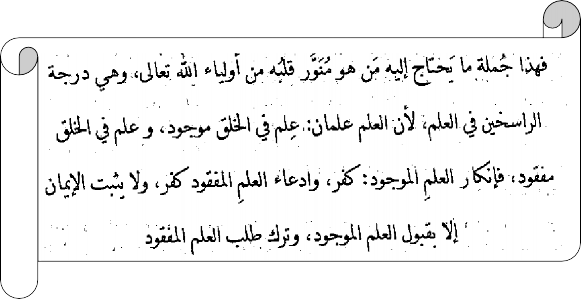 فهذا جُملة ما يَحتاج إليه مَن هو مُنَوَّر قلبُه من أولياء الله تعالى، وهي درجة
الراسخين في العلم، لأن العلم علمان: عِلم في الخلق موجود، و علم في الخلق
مفقود، فإنكار العلمِ الموجود: كفر، وادعاء العلمِ المفقود كفر، ولا يثبت الإيمان
إلا بقبول العلم الموجود، وترك طلب العلم المفقود